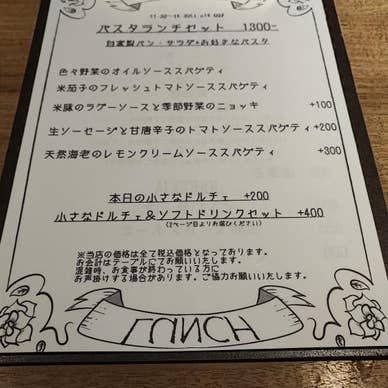 11:30-14:30(L.o14:00)
パスタランチセット 1300-
自家製パン・サラダ+お好きなパスタ
色々野菜のオイルソーススパゲティ
米茄子のフレッシュトマトソーススパゲティ
米豚のラグーソースと季節野菜のニョッキ +100
生ソーセージと甘唐辛子のトマトソーススパゲティ +200
天然海老のレモンクリームソーススパゲティ +300
本日の小さなドルチェ +200
小さなドルチェ&ソフトドリンクセット +400
(2ページ目よりお選びください)
※当店の価格は全て税込価格となっております。
お会計はテーブルにてお願いいたします。
混雑時、お食事が終わっている方に
お声掛けする場合があります。ご協力お願いいたします。
LUNCH